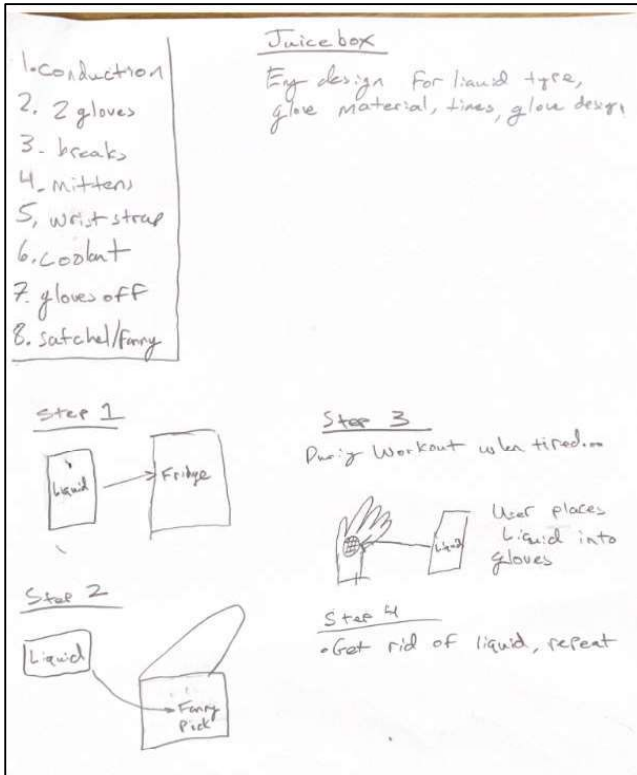 1. conduction
2. 2 gloves
3. breaks
4. mittens
5. wrist strap
6. coolant
7. gloves off
8. satchel/Fanny
Juice box
design for liquid type,
glove material, times, glove design
Step 1
Liquid
Fridge
Step 2
Liquid
Fanny
Pick
Step 3
During Workout when tired...
Liquid
User places
Liquid into
gloves
Step 4
• Get rid of liquid, repeat